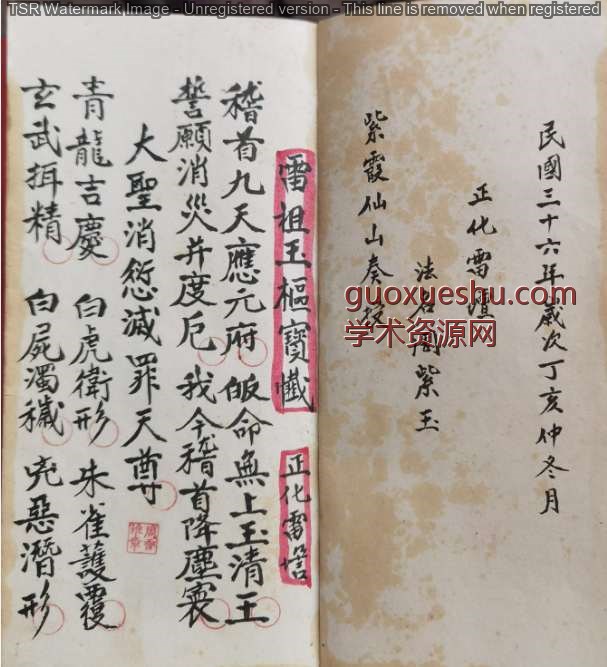 TSR Watermark Image - Unregistered version - This line is removed when registered
民國三十六年歲次丁亥仲冬月
正化雷壇
法名周紫玉
紫霞仙山奏授
guoxueshu.com
学术资源网
雷祖玉樞寶懺 正化雷壇
稽首九天應元府 皈命無上玉清王
誓願消災并度厄 我今稽首降塵寰
大聖消愆滅罪天尊
青龍吉慶 白虎衛形 朱雀護覆
玄武揖精 白屍濁穢 兇惡潛形